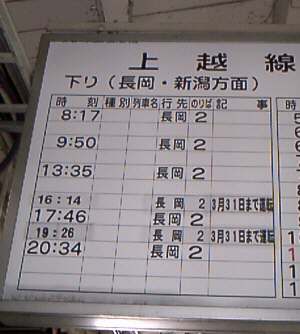 上越線
下り(長岡・新潟方面)
時刻 種別 列車名 行先 のりば 記事
8:17 長岡 2
9:50 長岡 2
13:35 長岡 2
16:14 長岡 2 3月31日まで運転
17:46 長岡 2
19:26 長岡 2 3月31日まで運転
20:34 長岡 2